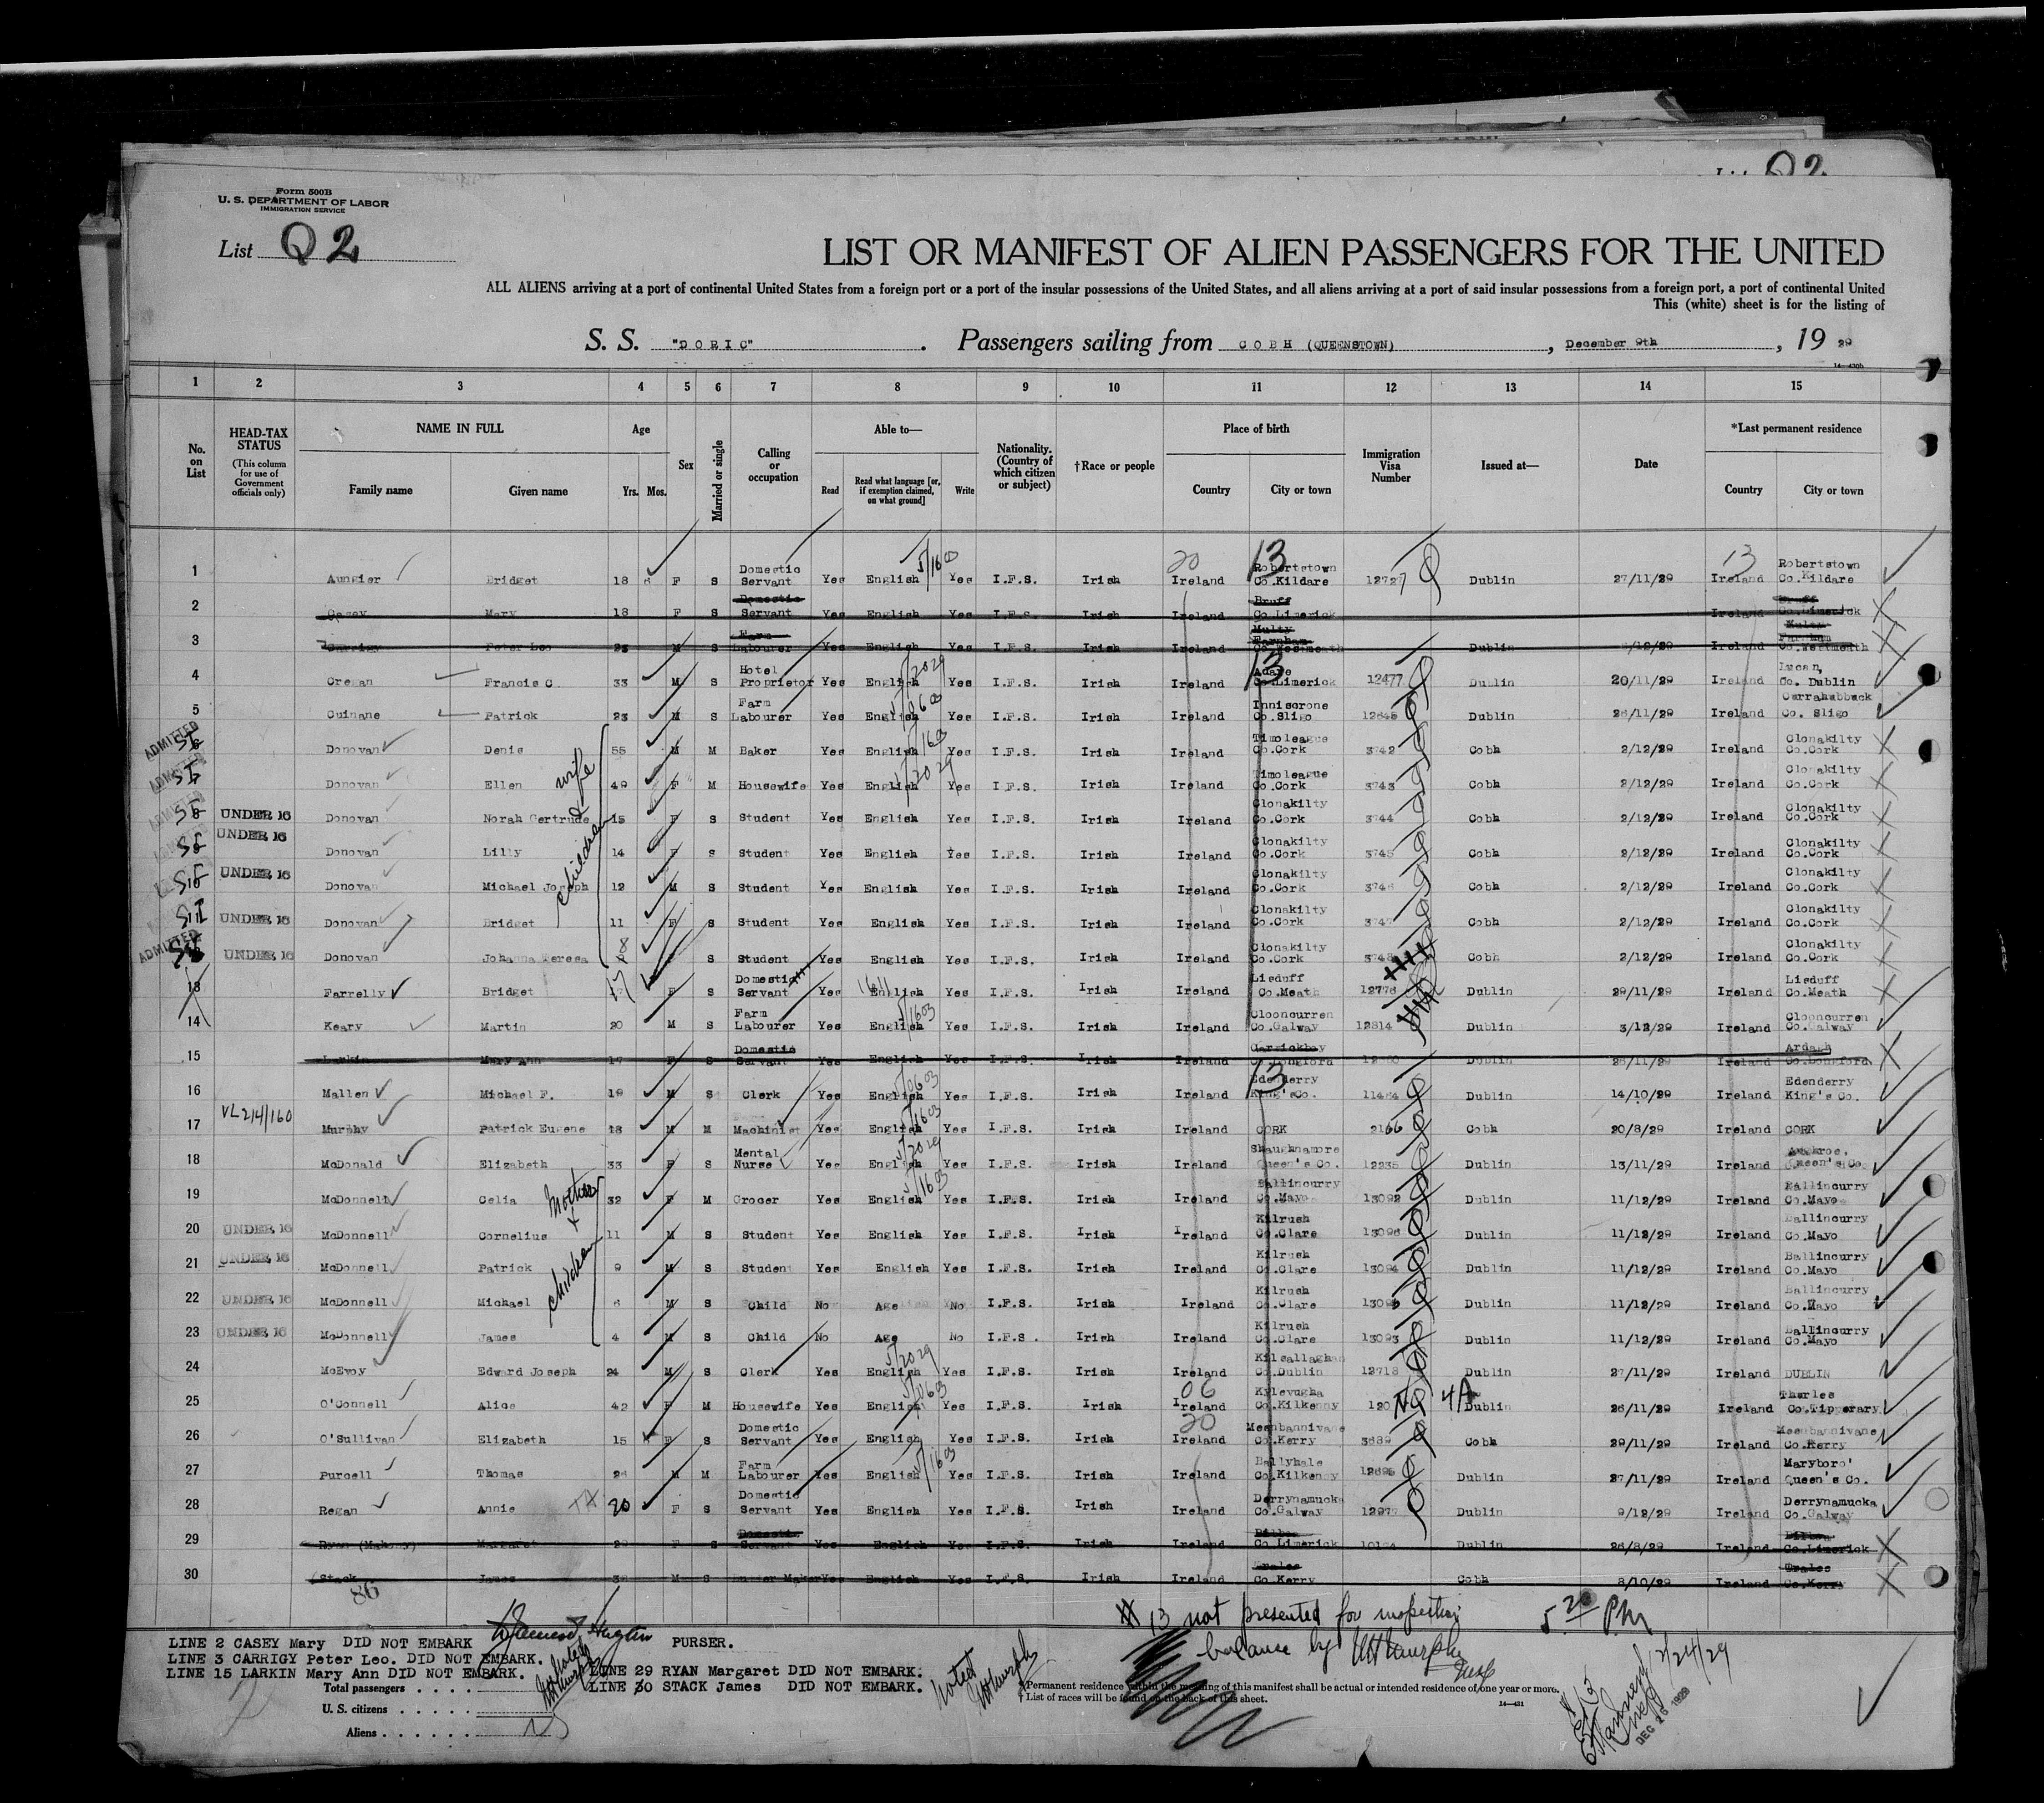 Q2
Form 500B
U. S. DEPARTMENT OF LABOR
IMMIGRATION SERVICE
List Q 2
LIST OR MANIFEST OF ALIEN PASSENGERS FOR THE UNITED
ALL ALIENS arriving at a port of continental United States from a foreign port or a port of the insular possessions of the United States, and all aliens arriving at a port of said insular possessions from a foreign port, a port of continental United
This (white) sheet is for the listing of
S. S. "DORIC". Passengers sailing from COBH (QUEENSTOWN), December 9th, 19 29
1 2 3 4 5 6 7 8 9 10 11 12 13 14 15
No. on List
HEAD-TAX STATUS (This column for use of Government officials only)
NAME IN FULL
Family name Given name
Age
Yrs. Mos.
Sex
Married or single
Calling or occupation
Able to—
Read Read what language [or, if exemption claimed, on what ground] Write
Nationality. (Country of which citizen or subject)
†Race or people
Place of birth
Country City or town
Immigration Visa Number
Issued at—
Date
*Last permanent residence
Country City or town
1 Aungier Bridget 18 6 F S Domestic Servant Yes English Yes I.F.S. Irish Ireland Robertstown Co.Kildare 12727 Dublin 27/11/29 Ireland Robertstown Co.Kildare
2 Casey Mary 18 F S Domestic Servant Yes English Yes I.F.S. Irish Ireland Bruff Co.Limerick Ireland Bruff Co.Limerick
3 Carrigy Peter Leo 23 M S Farm Labourer Yes English Yes I.F.S. Irish Ireland Multy Farnham Co.Westmeath Dublin /12/29 Ireland Multy Farnham Co.Westmeath
4 Cregan Francis C 33 M S Hotel Proprietor Yes English Yes I.F.S. Irish Ireland Adare Co.Limerick 12477 Dublin 20/11/29 Ireland Lucan, Co. Dublin
5 Cuinane Patrick 23 M S Farm Labourer Yes English Yes I.F.S. Irish Ireland Inniscrone Co.Sligo 12645 Dublin 26/11/29 Ireland Carrahabback Co. Sligo
ADMITTED SI 6 Donovan Denis 55 M M Baker Yes English Yes I.F.S. Irish Ireland Timoleague Co.Cork 3742 Cobh 2/12/29 Ireland Clonakilty Co.Cork
SI Donovan Ellen wife 49 F M Housewife Yes English Yes I.F.S. Irish Ireland Timoleague Co.Cork 3743 Cobh 2/12/29 Ireland Clonakilty Co.Cork
SI 8 UNDER 16 Donovan Norah Gertrude 15 F S Student Yes English Yes I.F.S. Irish Ireland Clonakilty Co.Cork 3744 Cobh 2/12/29 Ireland Clonakilty Co.Cork
SI UNDER 16 Donovan Lilly 14 F S Student Yes English Yes I.F.S. Irish Ireland Clonakilty Co.Cork 3745 Cobh 2/12/29 Ireland Clonakilty Co.Cork
SI 10 UNDER 16 Donovan Michael Joseph children 12 M S Student Yes English Yes I.F.S. Irish Ireland Clonakilty Co.Cork 3746 Cobh 2/12/29 Ireland Clonakilty Co.Cork
SI 11 UNDER 16 Donovan Bridget 11 F S Student Yes English Yes I.F.S. Irish Ireland Clonakilty Co.Cork 3747 Cobh 2/12/29 Ireland Clonakilty Co.Cork
ADMITTED SI UNDER 16 Donovan Johanna Teresa 8 S Student Yes English Yes I.F.S. Irish Ireland Clonakilty Co.Cork 3748 Cobh 2/12/29 Ireland Clonakilty Co.Cork
13 Farrelly Bridget 17 F S Domestic Servant Yes English Yes I.F.S. Irish Ireland Lisduff Co.Meath 12776 Dublin 29/11/29 Ireland Lisduff Co.Meath
14 Keary Martin 20 M S Farm Labourer Yes English Yes I.F.S. Irish Ireland Clooncurren Co.Galway 12814 Dublin 3/12/29 Ireland Clooncurren Co.Galway
15 Larkin Mary Ann 17 F S Domestic Servant Yes English Yes I.F.S. Irish Ireland Carrickboy Co.Longford Dublin 26/11/29 Ireland Ardagh Co.Longford
16 Mallen Michael F. 19 M S Clerk Yes English Yes I.F.S. Irish Ireland Edenderry King's Co. 11484 Dublin 14/10/29 Ireland Edenderry King's Co.
17 VL 214/160 Murphy Patrick Eugene 18 M M Machinist Yes English Yes I.F.S. Irish Ireland CORK 2166 Cobh 20/8/29 Ireland CORK
18 McDonald Elizabeth 33 F S Mental Nurse Yes English Yes I.F.S. Irish Ireland Shaughnamore Queen's Co. 12235 Dublin 13/11/29 Ireland Queen's Co.
19 McDonnell Celia Mother + 32 F M Grocer Yes English Yes I.F.S. Irish Ireland Ballincurry Co.Mayo 13092 Dublin 11/12/29 Ireland Ballincurry Co.Mayo
20 UNDER 16 McDonnell Cornelius 11 M S Student Yes English Yes I.F.S. Irish Ireland Kilrush Co.Clare 13096 Dublin 11/12/29 Ireland Ballincurry Co.Mayo
21 UNDER 16 McDonnell Patrick children 9 M S Student Yes English Yes I.F.S. Irish Ireland Kilrush Co.Clare 13094 Dublin 11/12/29 Ireland Ballincurry Co.Mayo
22 UNDER 16 McDonnell Michael 6 M S Child No Age No I.F.S. Irish Ireland Kilrush Co.Clare 1309 Dublin 11/12/29 Ireland Ballincurry Co.Mayo
23 UNDER 16 McDonnell James 4 M S Child No Age No I.F.S. Irish Ireland Kilrush Co.Clare 13093 Dublin 11/12/29 Ireland Ballincurry Co.Mayo
24 McEvoy Edward Joseph 24 M S Clerk Yes English Yes I.F.S. Irish Ireland Kilsallaghan Co.Dublin 12718 Dublin 27/11/29 Ireland DUBLIN
25 O'Connell Alice 42 F M Housewife Yes English Yes I.F.S. Irish Ireland Kylevugha Co.Kilkenny 120 Dublin 26/11/29 Ireland Thurles Co.Tipperary
26 O'Sullivan Elizabeth 15 F S Domestic Servant Yes English Yes I.F.S. Irish Ireland Meenbannivane Co.Kerry 3689 Cobh 29/11/29 Ireland Meenbannivane Co.Kerry
27 Purcell Thomas 26 M M Farm Labourer Yes English Yes I.F.S. Irish Ireland Ballyhale Co.Kilkenny 12695 Dublin 27/11/29 Ireland Maryboro' Queen's Co.
28 Regan Annie 20 F S Domestic Servant Yes English Yes I.F.S. Irish Ireland Derrynamucka Co.Galway 12977 Dublin 9/12/29 Ireland Derrynamucka Co.Galway
29 Ryan (Mahony) Margaret 29 F S Domestic Servant Yes English Yes I.F.S. Irish Ireland Co.Limerick Dublin 26/8/29 Ireland Co.Limerick
30 Stack James M S Yes English Yes I.F.S. Irish Ireland Tralee Co.Kerry Cobh 8/10/29 Ireland Tralee Co.Kerry
86
# 13 not presented for inspection
balance by
5 20 PM
LINE 2 CASEY Mary DID NOT EMBARK PURSER.
LINE 3 CARRIGY Peter Leo. DID NOT EMBARK.
LINE 15 LARKIN Mary Ann DID NOT EMBARK. LINE 29 RYAN Margaret DID NOT EMBARK.
LINE 30 STACK James DID NOT EMBARK.
noted
12/24/29
Total passengers
U. S. citizens
Aliens
*Permanent residence within the meaning of this manifest shall be actual or intended residence of one year or more.
† List of races will be found on the back of this sheet.
14—431
# 13